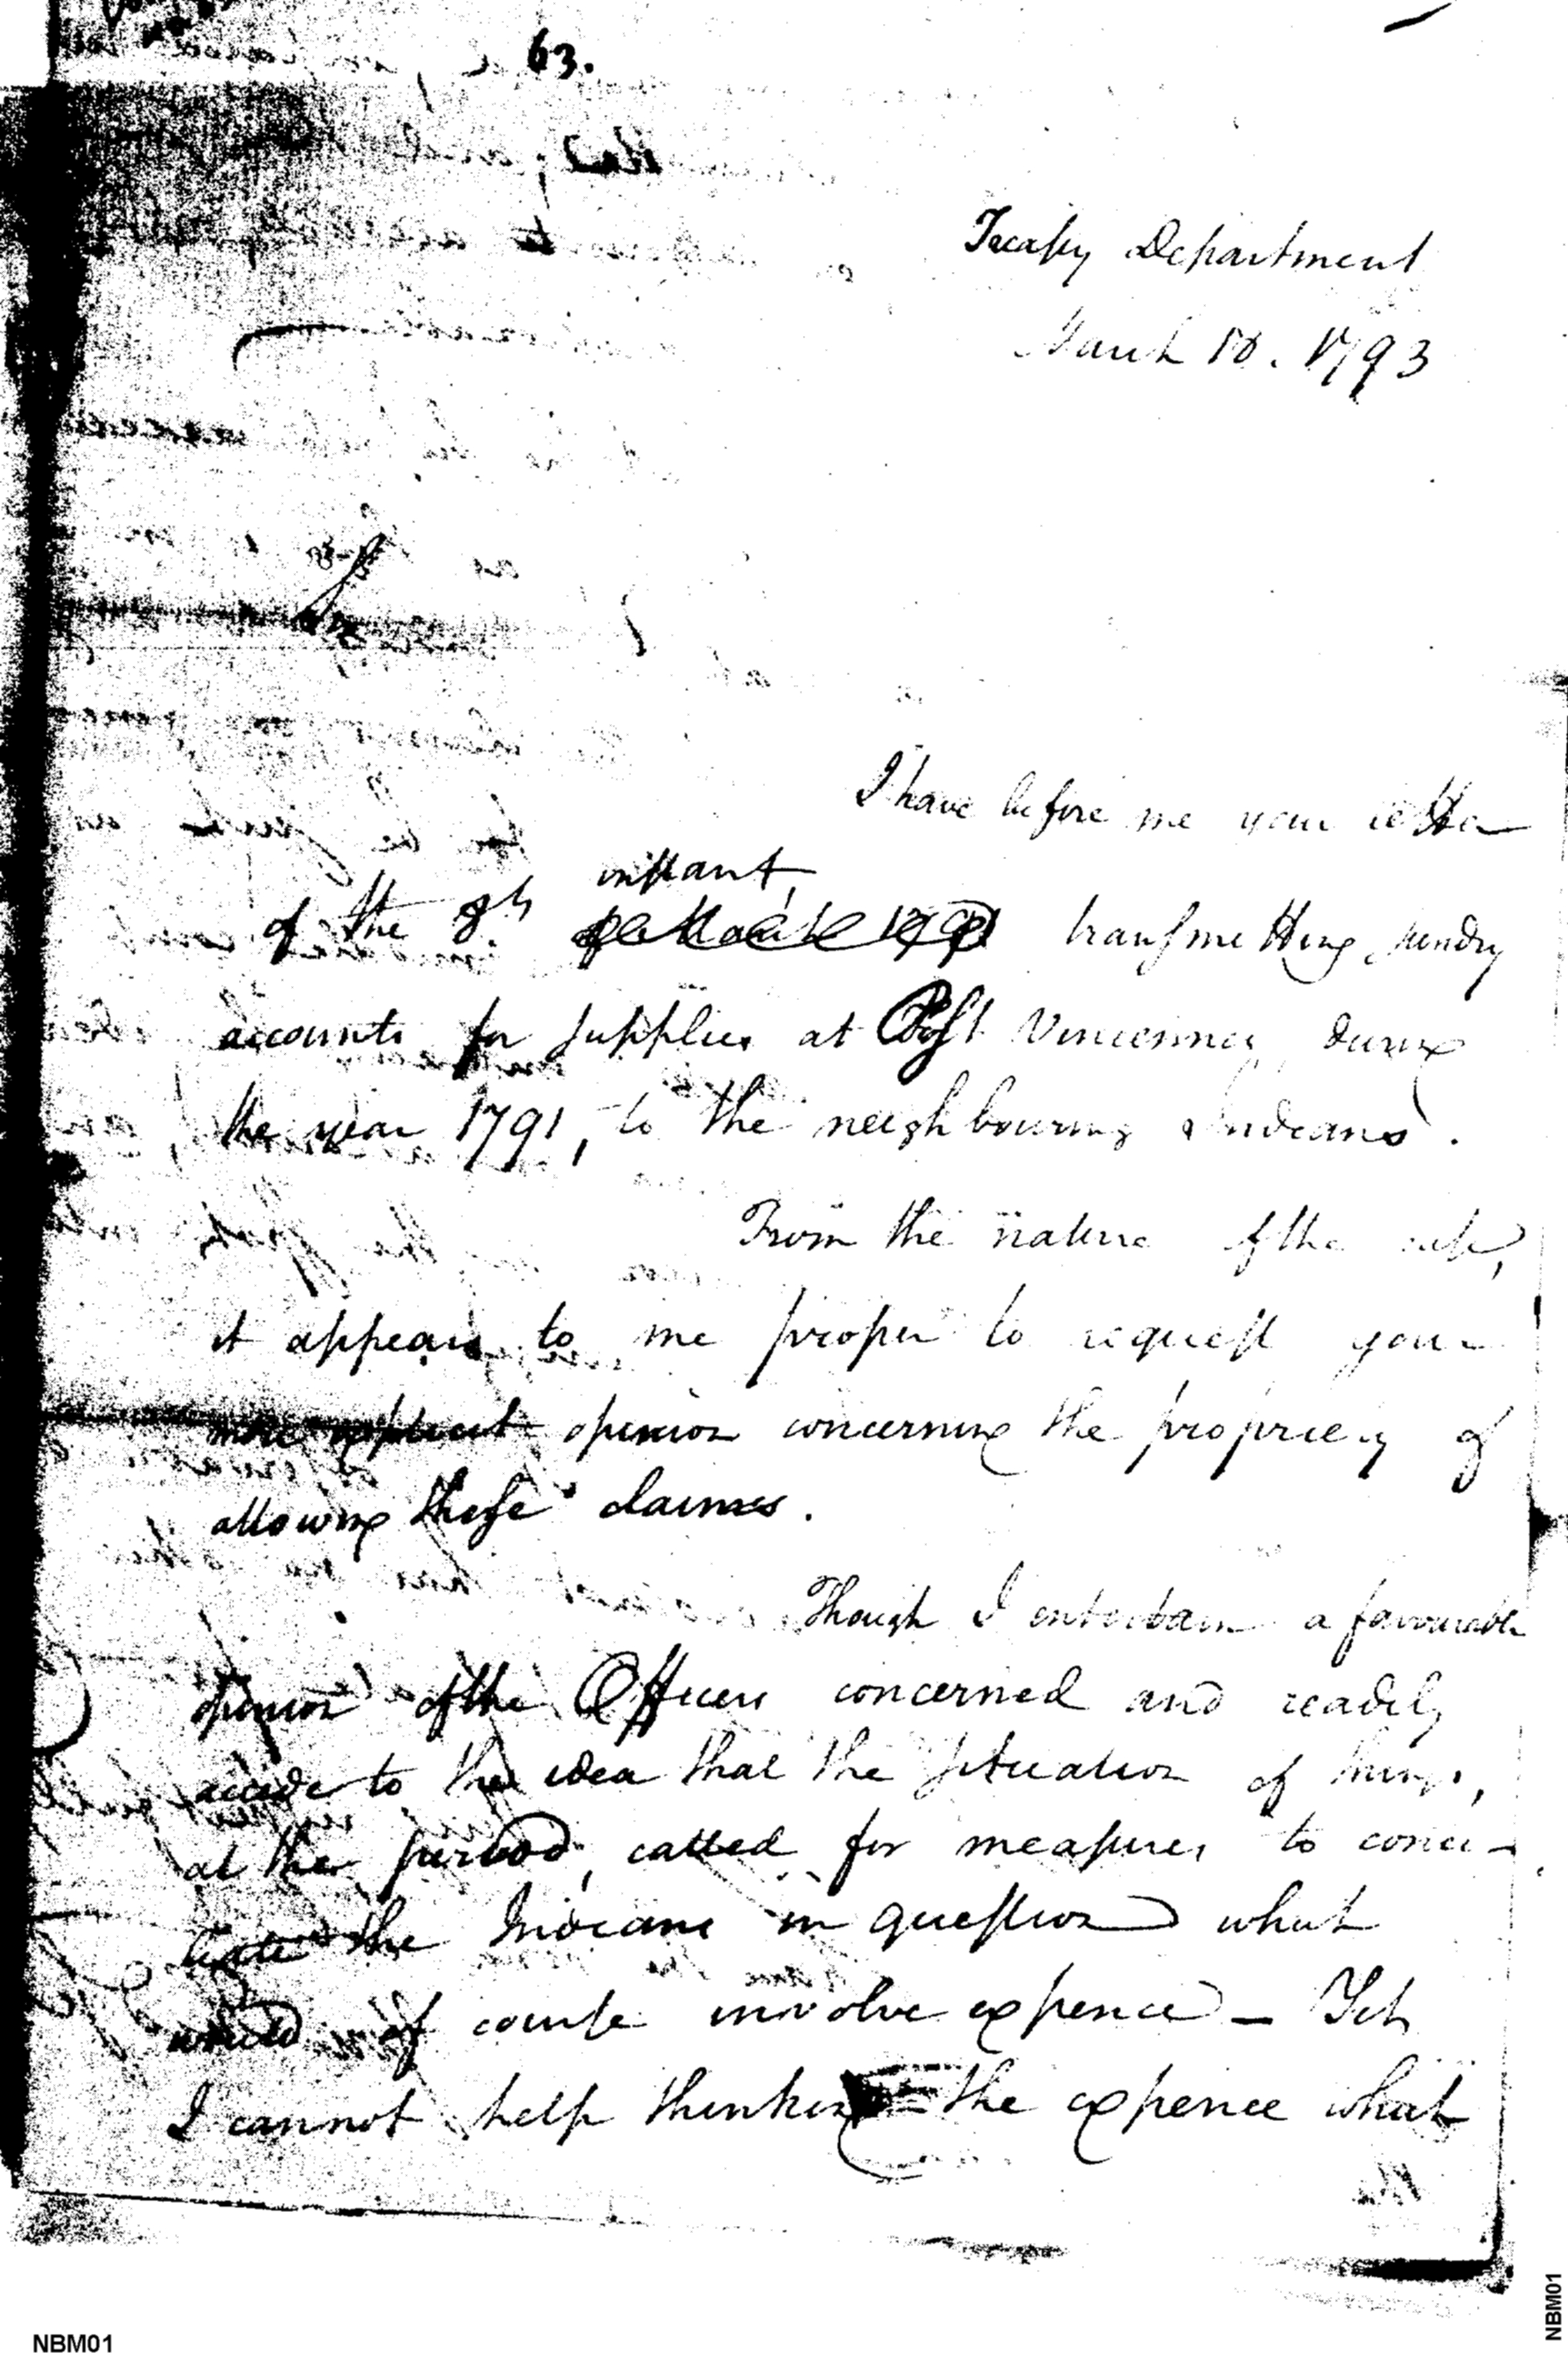 63.
Treasury Department
March 18. 1793
I have before me your letter
instant,
of the 8th transmitting sundry
accounts for supplies at Post Vincennes during
the year 1791, to the neighbouring Indians.
From the nature of the case,
it appears to me proper to request your
more explicit opinion concerning the propriety of
allowing these claims.
Though I entertain a favourable
opinion of the Officers concerned and readily
accede to the idea that the situation of things,
at the period, called for measures to conci-
liate the Indians in question what
would of course involve expence – Yet
I cannot help thinking the expence what
NBM01
NBM01